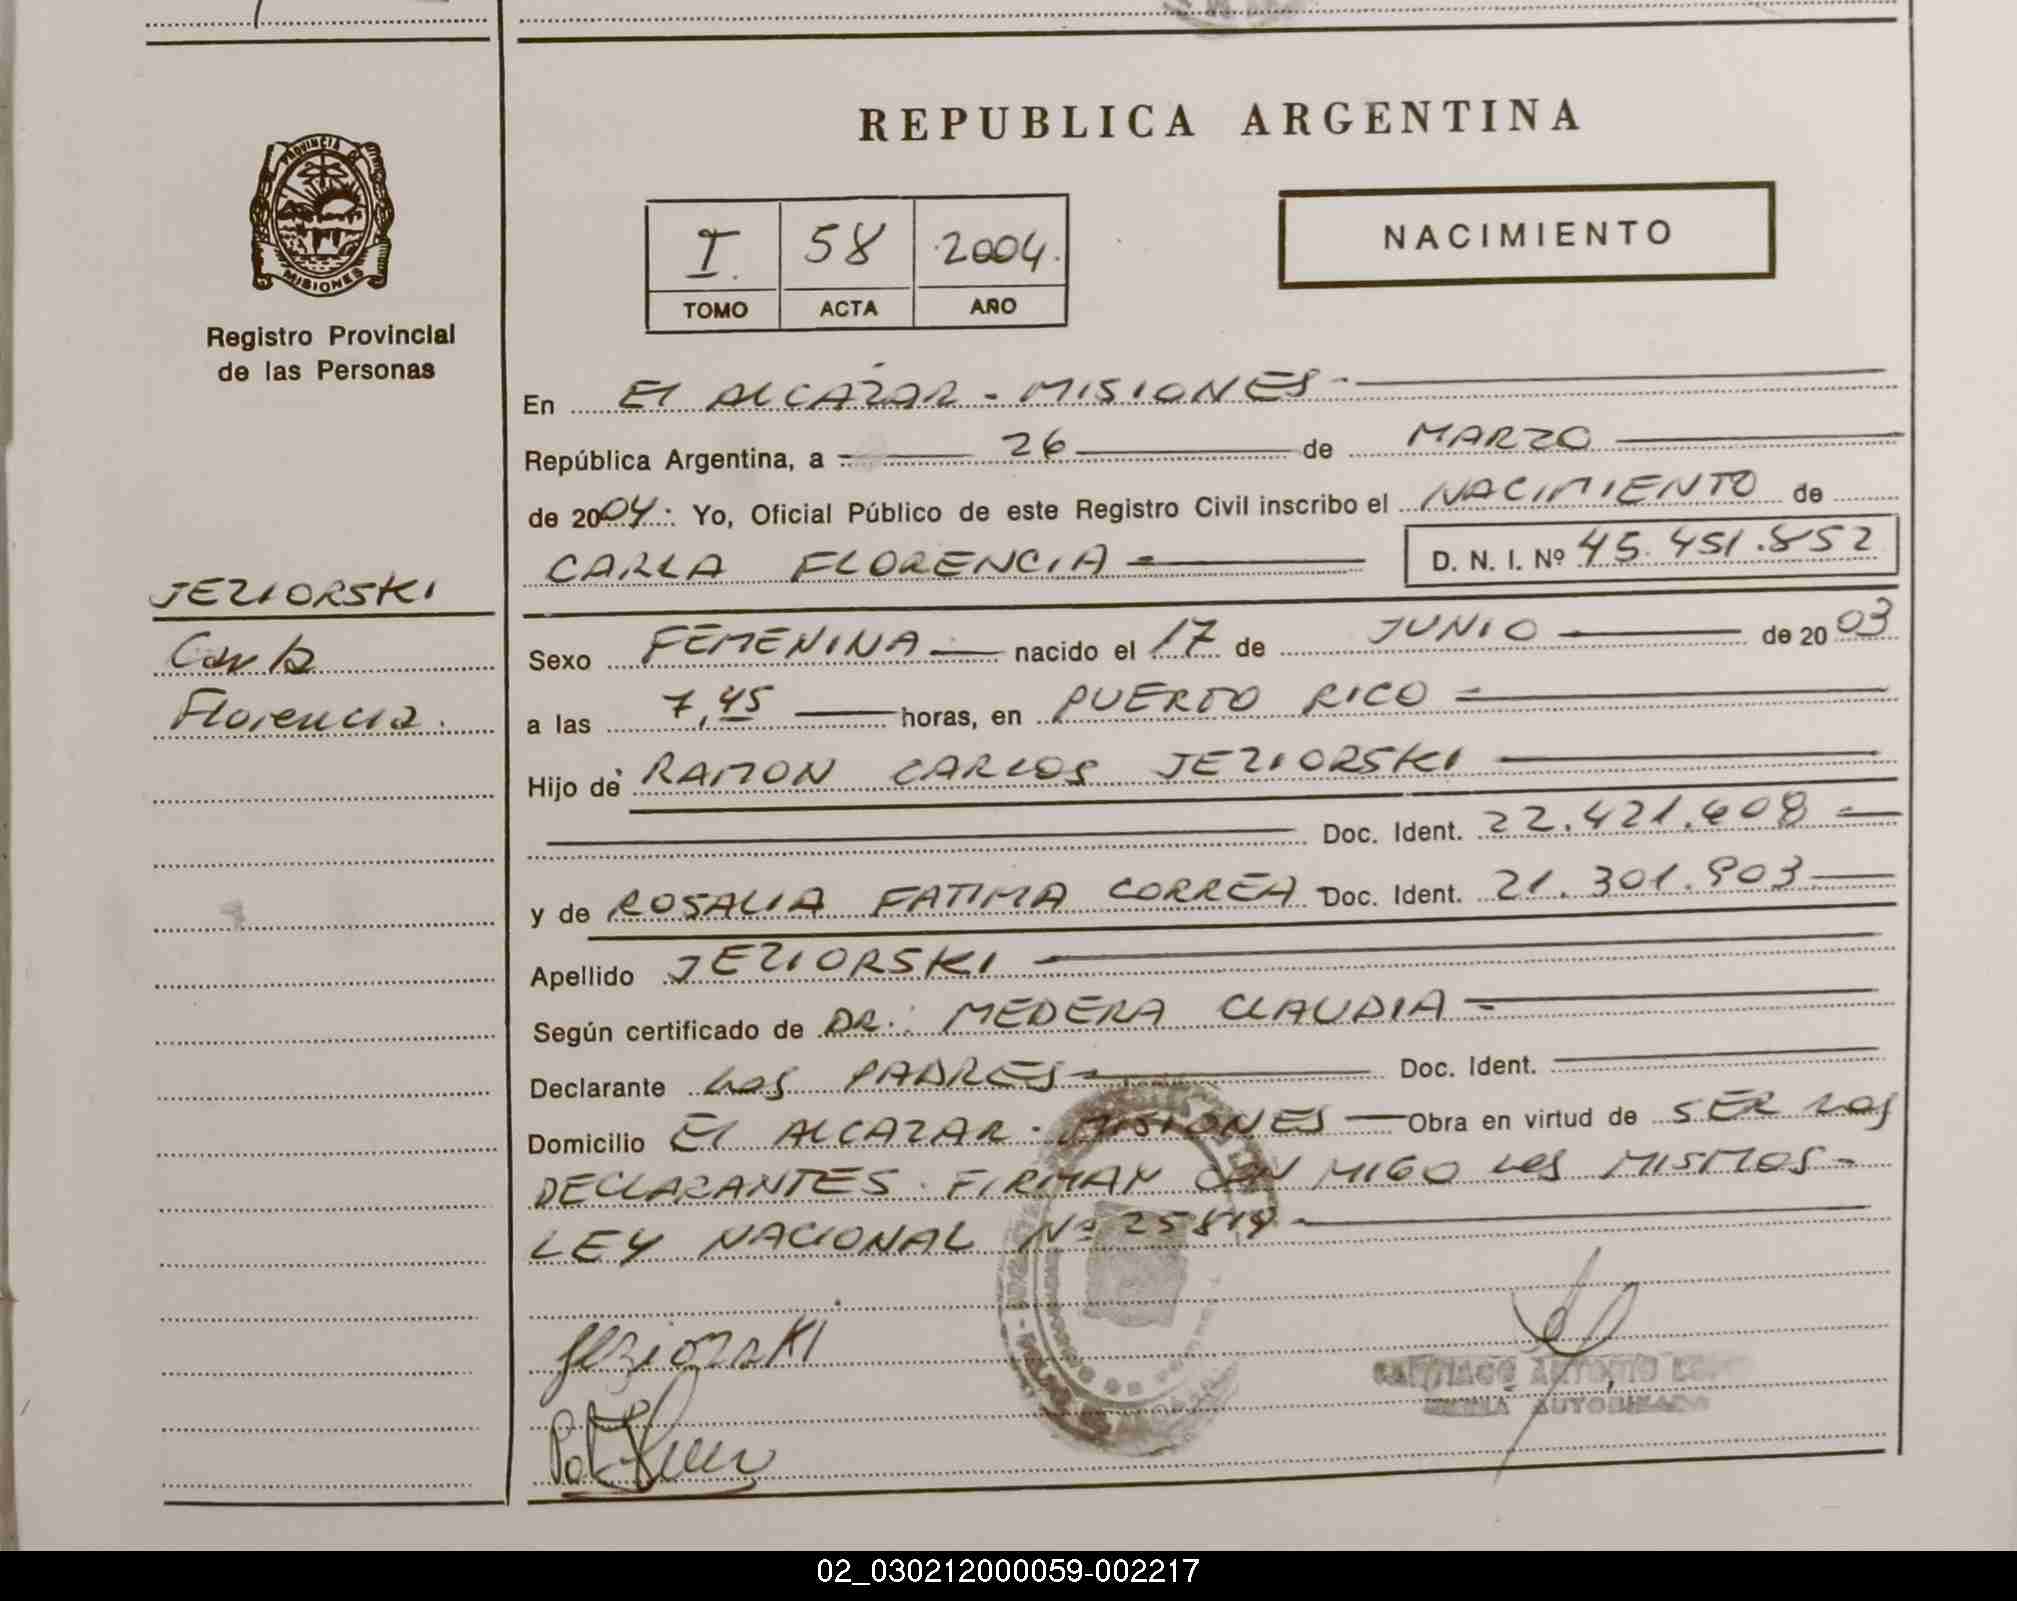 REPUBLICA ARGENTINA
PROVINCIA DE
MISIONES
Registro Provincial
de las Personas
I. 58 2004.
TOMO ACTA AÑO
NACIMIENTO
En El ALCAZAR - MISIONES
República Argentina, a 26 de MARZO
de 2004. Yo, Oficial Público de este Registro Civil inscribo el NACIMIENTO de
CARLA FLORENCIA D. N. I. Nº 45.451.852
JEZIORSKI
Carla
Florencia.
Sexo FEMENINA nacido el 17 de JUNIO de 2003
a las 7,45 horas, en PUERTO RICO
Hijo de RAMON CARLOS JEZIORSKI
Doc. Ident. 22.421.608
y de ROSALIA FATIMA CORREA Doc. Ident. 21.301.903
Apellido JEZIORSKI
Según certificado de DR: MEDERA CLAUDIA
Declarante Los PADRES Doc. Ident.
Domicilio El ALCAZAR - MISIONES Obra en virtud de SER LOS
DECLARANTES. FIRMAN CON MIGO LOS MISMOS-
LEY NACIONAL Nº 25819
Jeziorski
SANTIAGO ANTONIO
AUTORIZADO
02_030212000059-002217